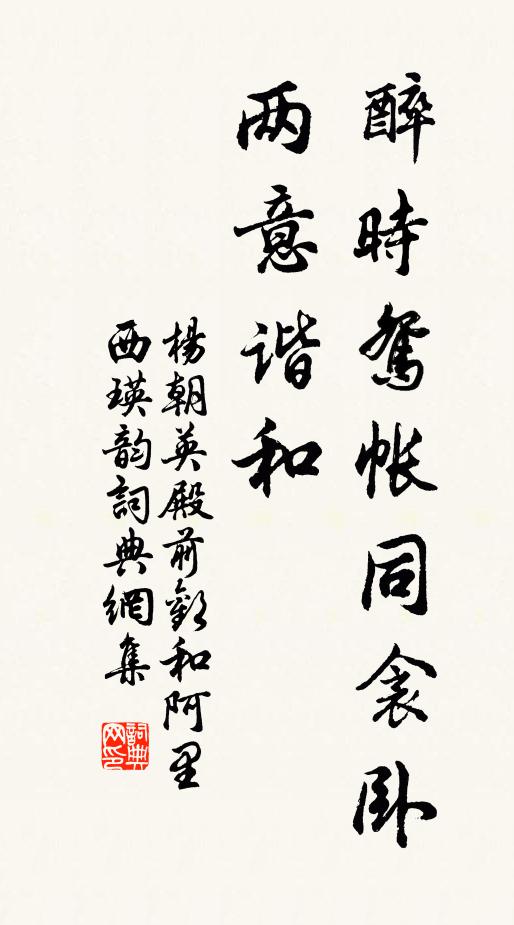 醉時鴛帳同衾卧
两意谐和
楊朝英殿前歡和阿里
西瑛韵詞典網集
詞典
网印